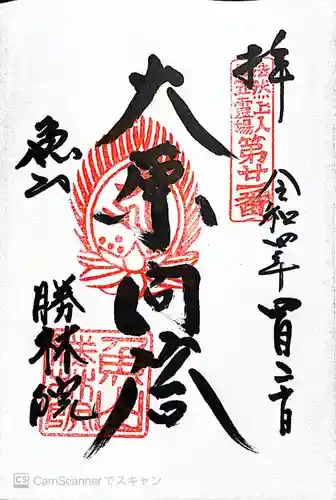 拝
法然上人
廿五霊場
第廿一番
令和四年四月二十日
大原問答
魚山
勝林院
CS CamScannerでスキャン